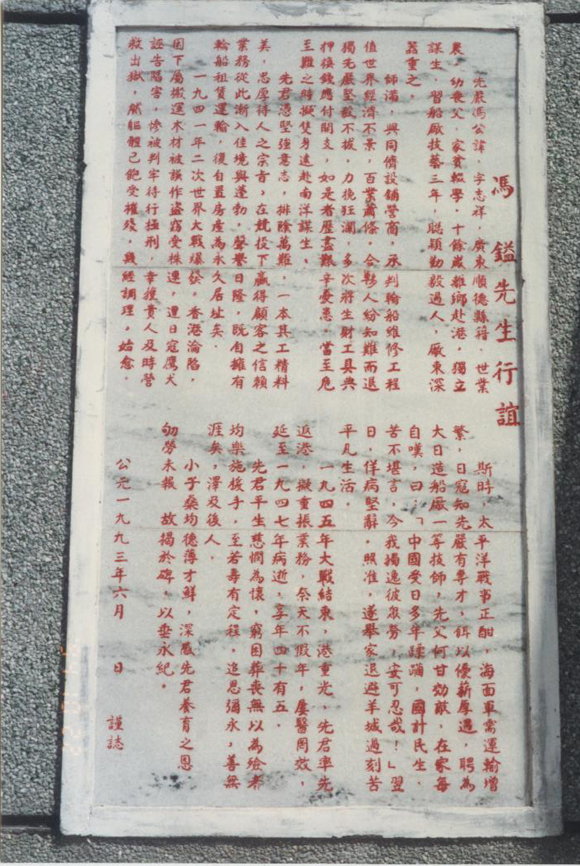 馮鎰先生行誼
先嚴馮公諱，字志祥，廣東順德縣籍，世業
農，幼喪父，家貧輟學，十餘歲離鄉赴港，獨立
謀生，習船廠技藝三年，聰穎勤毅過人，廠東深
器重之。
師滿，與同儕設鋪營商，承判輪船維修工程
值世界經濟不景，百業蕭條，合夥人紛知難而退
獨先嚴堅毅不拔，力挽狂瀾，多次將生財工具典
押換錢應付開支，如是者歷盡艱辛憂患，當至危
至難之時擬隻身遠赴南洋謀生。
先君憑堅強意志，排除萬難，一本其工精料
美，忠厚待人之宗旨，在競投下贏得顧客之信賴
業務從此漸入佳境與蓬勃，聲譽日隆，既自擁有
輪船租賃運輸，復自置房產為永久居址矣。
一九四一年二次世界大戰爆發，香港淪陷，
因下屬搬運木材被誤作盜竊受株連，遭日寇鷹犬
誣告陷害，慘被判牢待行極刑，幸獲貴人及時營
救出獄，然軀體已飽受摧殘，幾經調理，始愈。
斯時，太平洋戰事正酣，海面軍需運輸增
繁，日寇知先嚴有專才，餌以優薪厚遇，聘為
大日造船廠一等技師，先父何甘効敵，在家每
自嘆，曰：「中國受日多年蹂躪，國計民生，
苦不堪言，今我獨逸彼眾勞，安可忍哉！」翌
日，佯病堅辭，照准，遂舉家退避羊城過刻苦
平凡生活。
一九四五年大戰結束，港重光，先君率先
返港，擬重振業務，奈天不假年，屢醫罔效，
延至一九四七年病逝，享年四十有五。
先君平生慈憫為懷，窮困葬喪無以為殮者
均樂施援手，至若壽有定程，追思彌永，善無
涯矣，澤及後人。
小子燊均德薄才鮮，深感先君養育之恩
劬勞未報，故揭於碑，以垂永紀。
公元一九九三年六月　日　謹誌